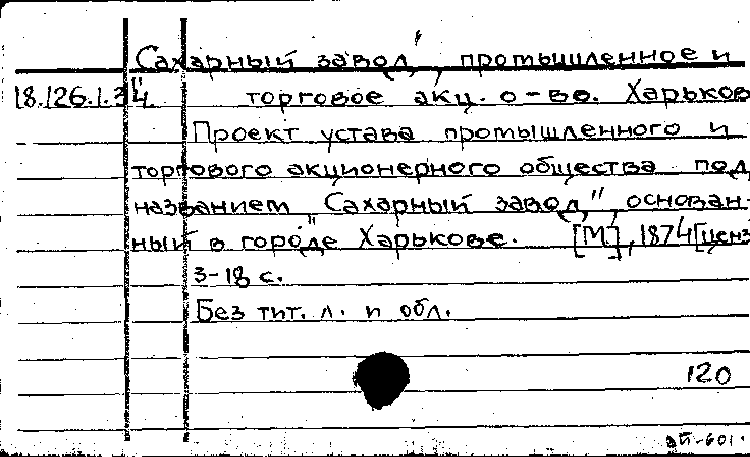 „Сахарный завод", промышленное и
18.126.1.34 торговое акц. о-во. Харьков
Проект устава промышленного и
торгового акционерного общества под
названием „Сахарный завод", основан-
ный в городе Харькове. [М], 1874 [ценз
3-18 с.
Без тит. л. и обл.
120